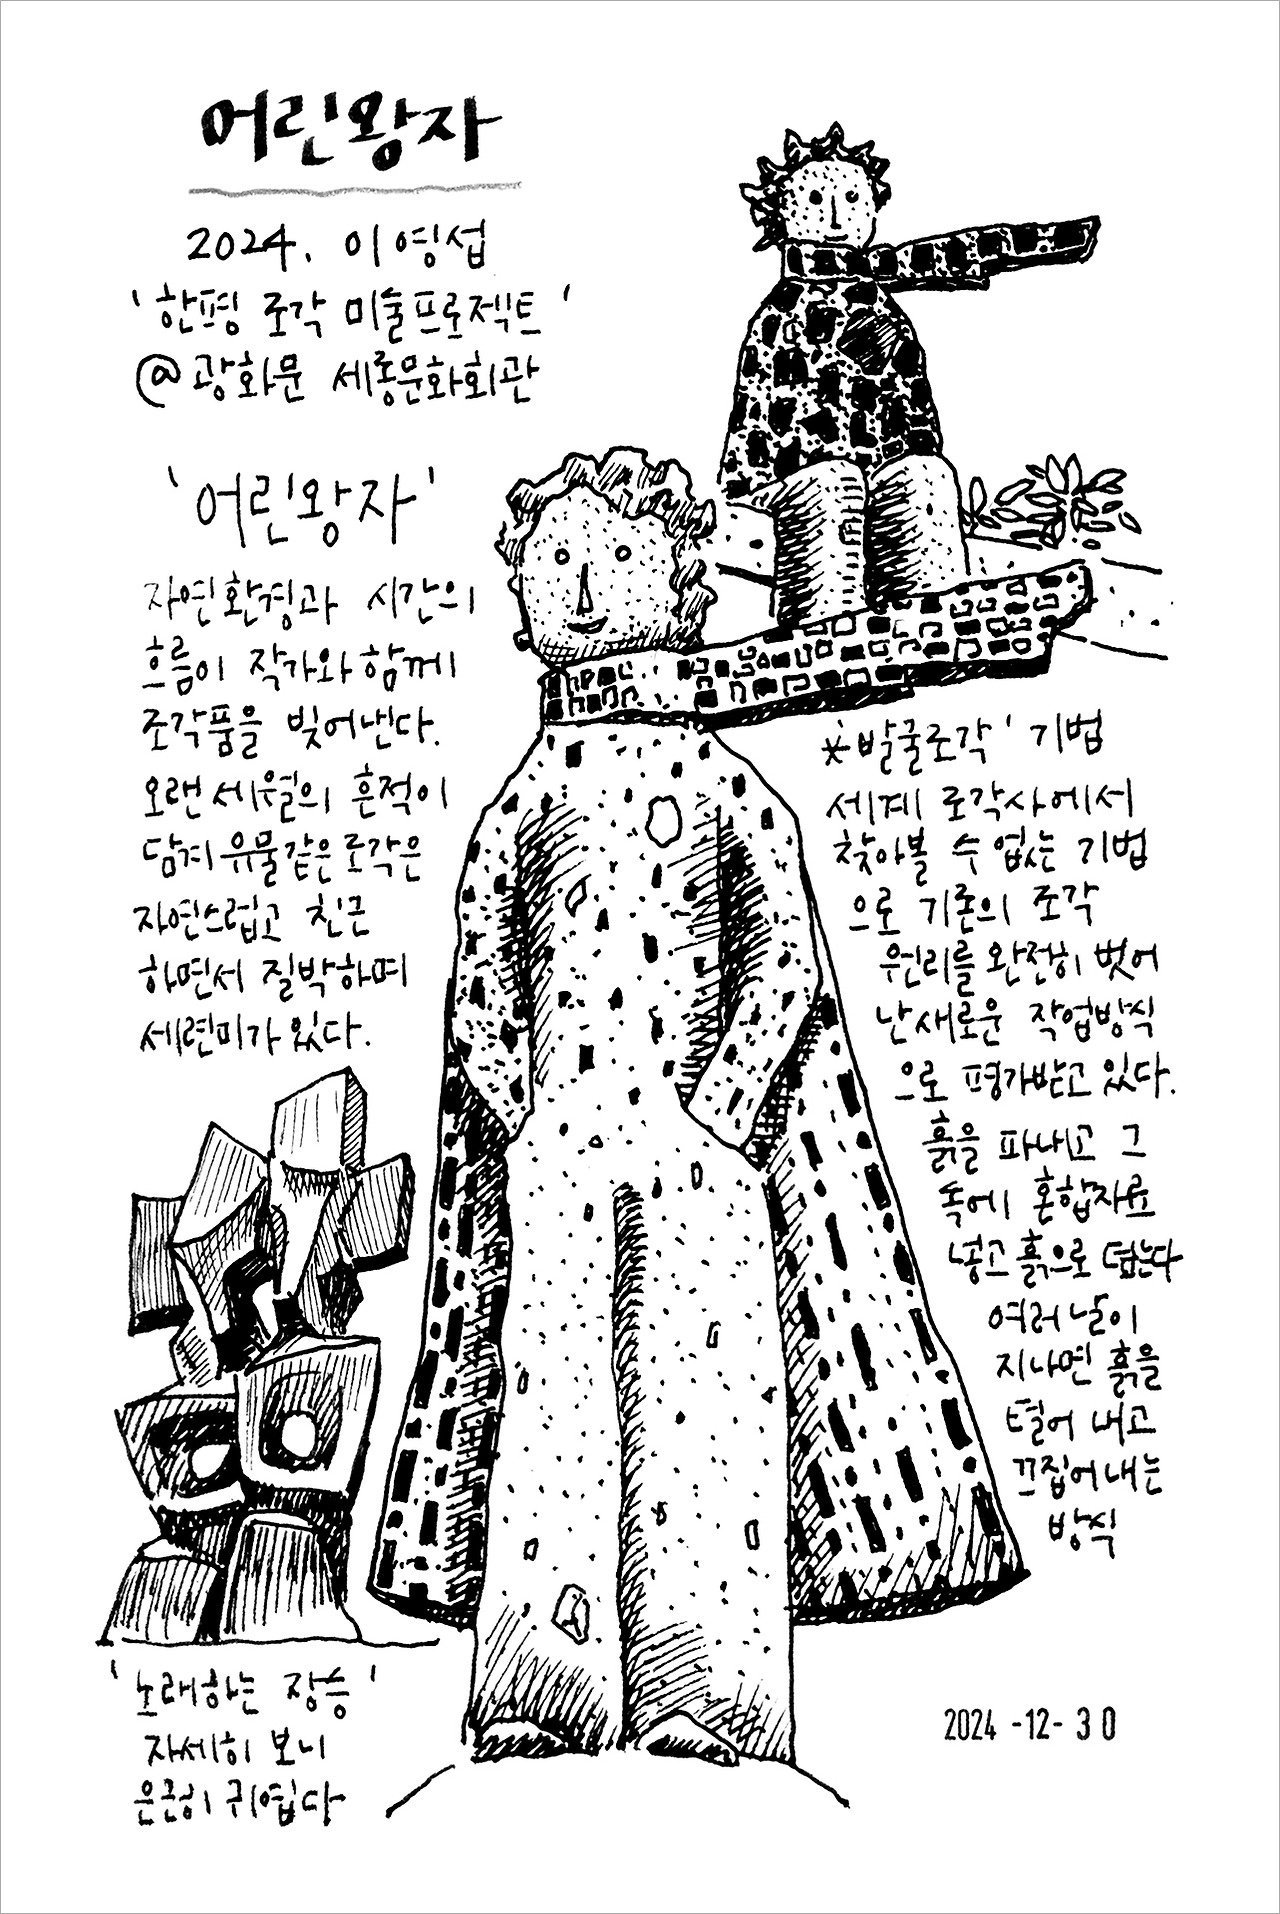 어린왕자
2024. 이영섭
'한평 조각 미술프로젝트'
@광화문 세종문화회관
'어린왕자'
자연환경과 시간의
흐름이 작가와 함께
조각품을 빚어낸다.
오랜 세월의 흔적이
담겨 유물같은 조각은
자연스럽고 친근
하면서 질박하며
세련미가 있다.
*발굴조각' 기법
세계 조각사에서
찾아볼 수 없는 기법
으로 기존의 조각
원리를 완전히 벗어
난 새로운 작업방식
으로 평가받고 있다.
흙을 파내고 그
속에 혼합자료
넣고 흙으로 덮는다
여러날이
지나면 흙을
털어 내고
끄집어내는
방식
'노래하는 장승'
자세히 보니
은근히 귀엽다
2024 -12- 30